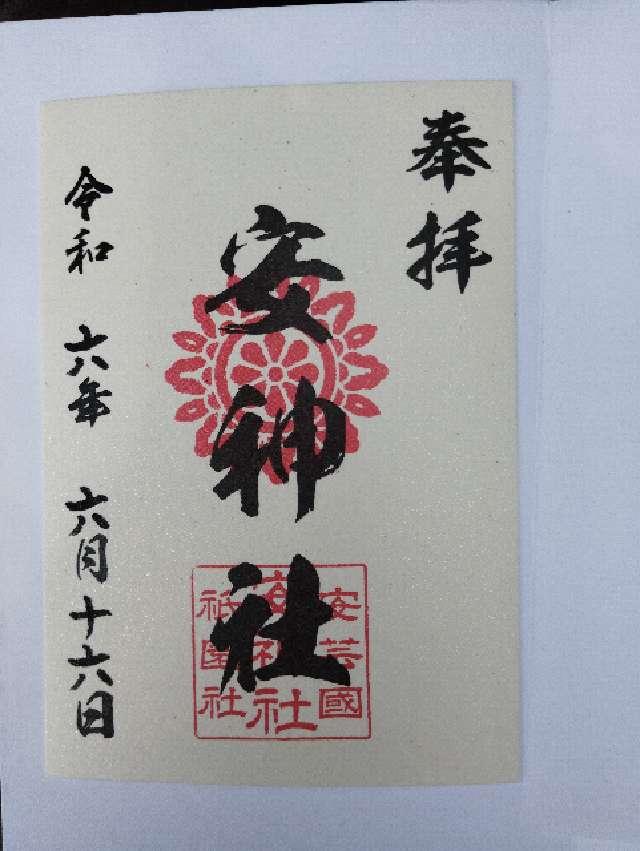 奉拝
安神社
安芸國
安神社
祇園社
令和 六年 六月十六日